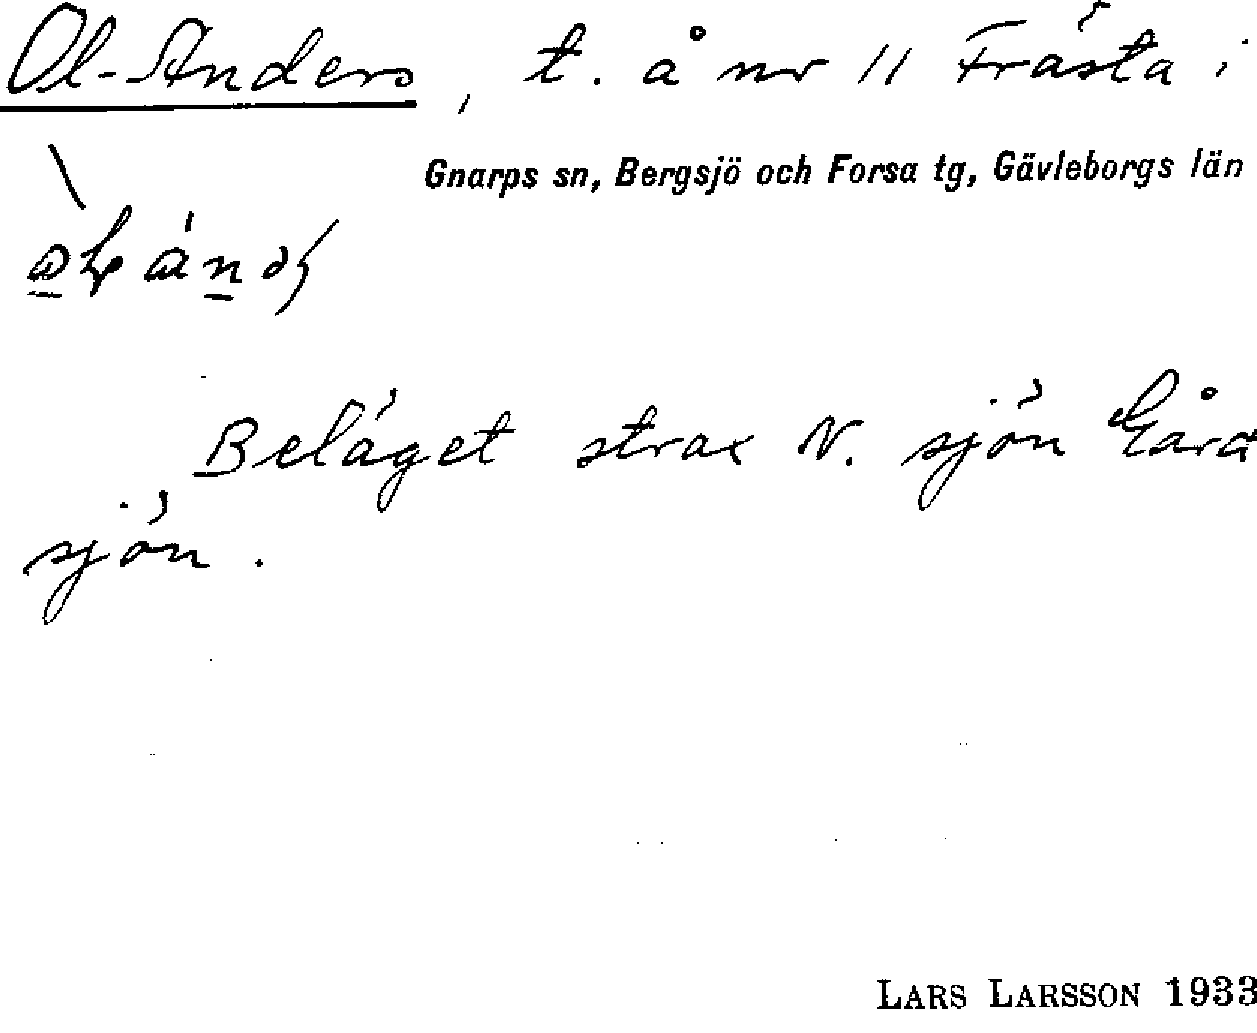 Ol-Anders, t. å nr 11 Frästa i
Gnarps sn, Bergsjö och Forsa tg, Gävleborgs län
Beläget strax N. sjön Gåra
sjön.
LARS LARSSON 1933